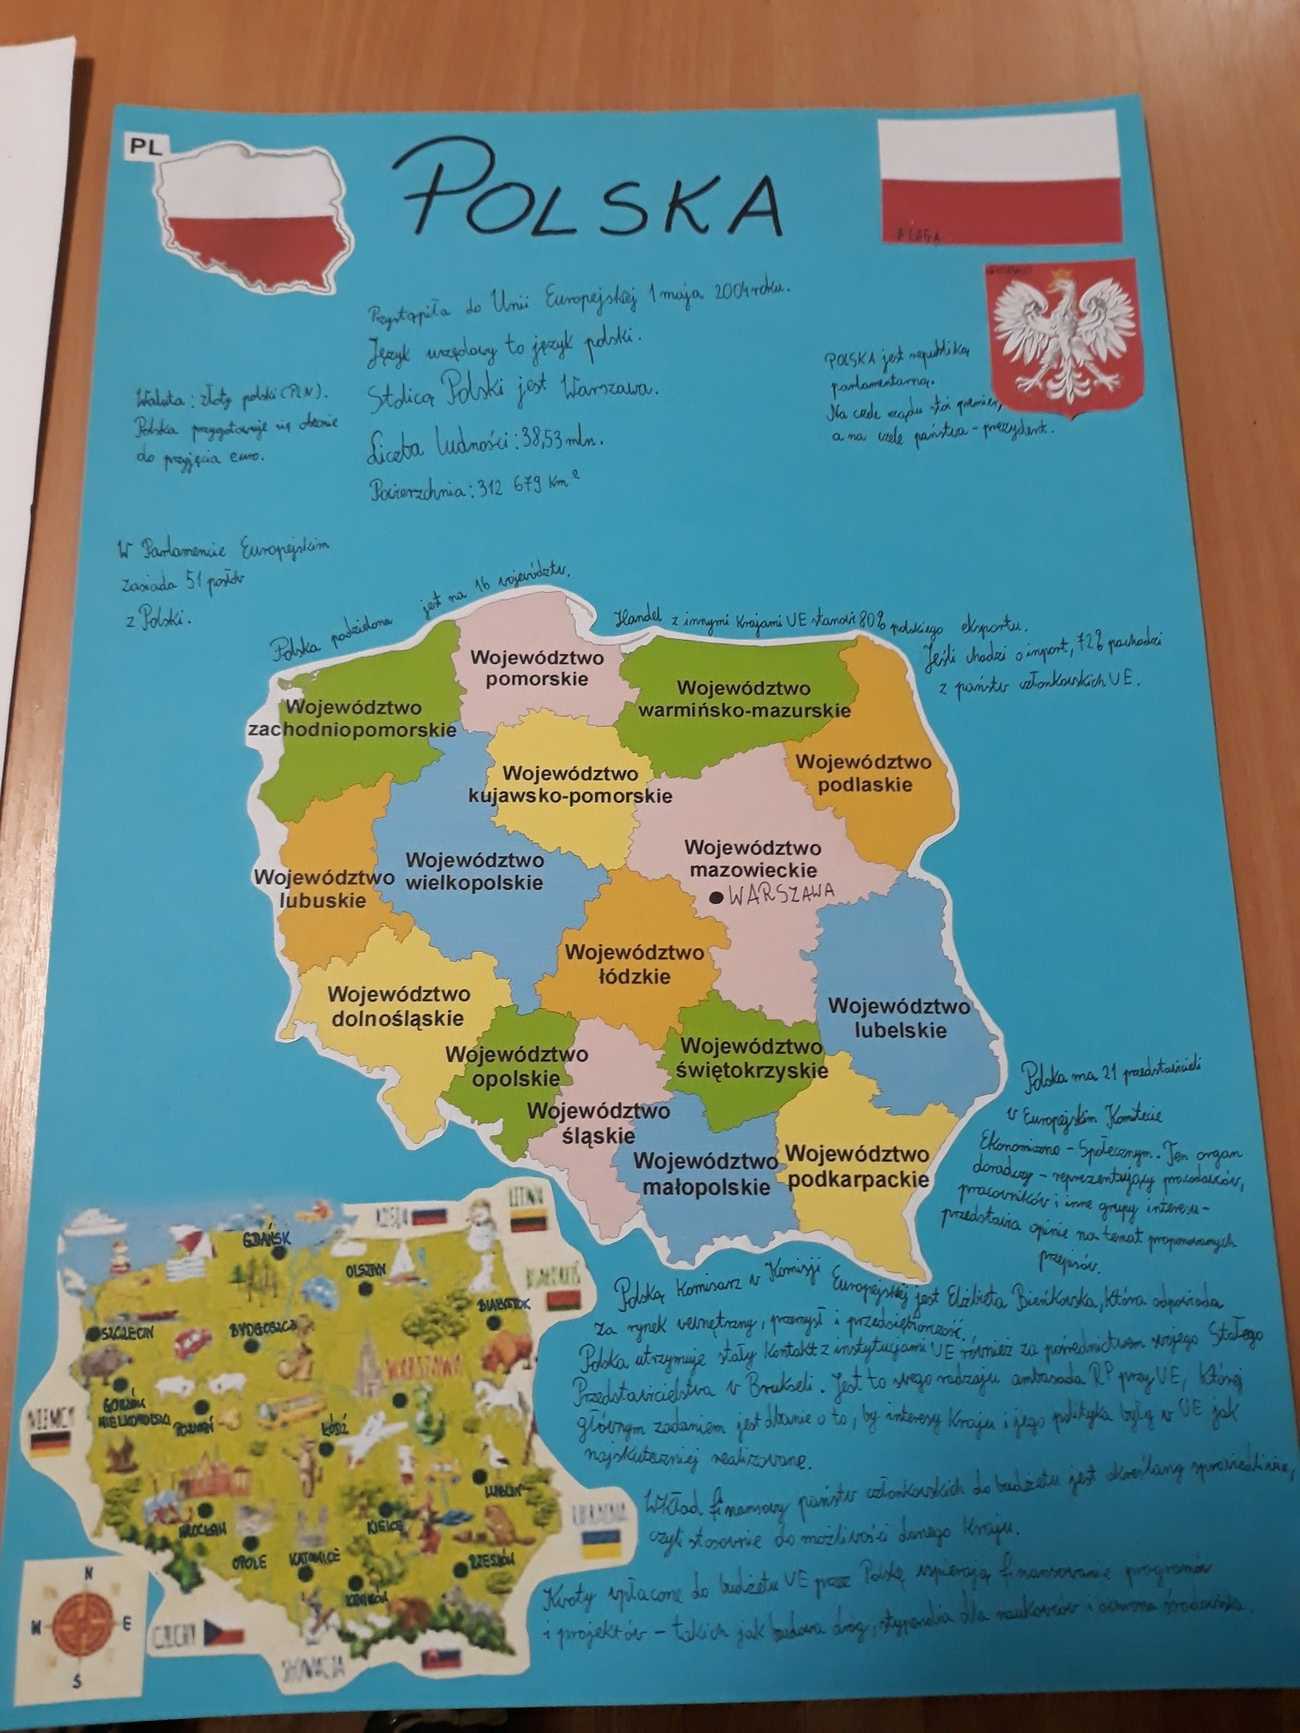 PL
POLSKA
FLAGA
Przystąpiła do Unii Europejskiej 1 maja 2004 roku.
Język urzędowy to język polski.
Stolicą Polski jest Warszawa.
Liczba ludności: 38,53 mln.
Powierzchnia: 312 679 km²
Waluta: złoty polski (PLN).
Polska przygotowuje się obecnie
do przyjęcia euro.
POLSKA jest republiką
parlamentarną.
Na czele rządu stoi premier,
a na czele państwa - prezydent.
W Parlamencie Europejskim
zasiada 51 posłów
z Polski.
Polska podzielona jest na 16 województw.
Handel z innymi krajami UE stanowi 80% polskiego eksportu.
Jeśli chodzi o import, 72% pochodzi
z państw członkowskich UE.
Województwo
pomorskie
Województwo
zachodniopomorskie
Województwo
warmińsko-mazurskie
Województwo
kujawsko-pomorskie
Województwo
podlaskie
Województwo
mazowieckie
WARSZAWA
Województwo
wielkopolskie
Województwo
lubuskie
Województwo
łódzkie
Województwo
dolnośląskie
Województwo
lubelskie
Województwo
opolskie
Województwo
świętokrzyskie
Województwo
śląskie
Województwo
małopolskie
Województwo
podkarpackie
Polska ma 21 przedstawicieli
w Europejskim Komitecie
Ekonomiczno - Społecznym. Ten organ
doradczy - reprezentujący pracodawców,
pracowników i inne grupy interesu -
przedstawia opinie na temat proponowanych
przepisów.
Polską Komisarz w Komisji Europejskiej jest Elżbieta Bieńkowska, która odpowiada
za rynek wewnętrzny, przemysł i przedsiębiorczość.
Polska utrzymuje stały kontakt z instytucjami UE również za pośrednictwem swojego Stałego
Przedstawicielstwa w Brukseli. Jest to swego rodzaju ambasada RP przy UE, której
głównym zadaniem jest dbanie o to, by interesy kraju i jego polityka były w UE jak
najskuteczniej realizowane.
Wkład finansowy państw członkowskich do budżetu jest określany sprawiedliwie,
czyli stosownie do możliwości danego kraju.
Kwoty wpłacone do budżetu UE przez Polskę wspierają finansowanie programów
i projektów - takich jak budowa dróg, stypendia dla naukowców i ochrona środowiska.
ROSJA
LITWA
BIAŁORUŚ
UKRAINA
SŁOWACJA
CZECHY
NIEMCY
GDAŃSK
OLSZTYN
BIAŁYSTOK
SZCZECIN
BYDGOSZCZ
WARSZAWA
GORZÓW
WIELKOPOLSKI
POZNAŃ
ŁÓDŹ
LUBLIN
WROCŁAW
KIELCE
OPOLE
KATOWICE
KRAKÓW
RZESZÓW
N
W
E
S